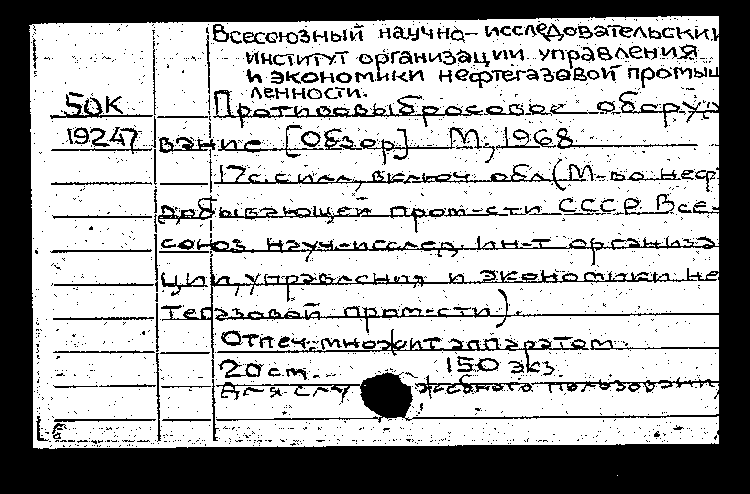 Всесоюзный научно-исследовательский
институт организации управления
и экономики нефтегазовой промыш
ленности.
50К Противовыбросовое оборудо
19247 вание [Обзор] М., 1968
17с. с илл., включ. обл. (М-во неф
добывающей пром-сти СССР. Все-
союз. науч-исслед. ин-т организа
ции, управления и экономики неф
тегазовой пром-сти).
Отпеч. множит. аппаратом.
20 ст. 150 экз.
Для служебного пользования